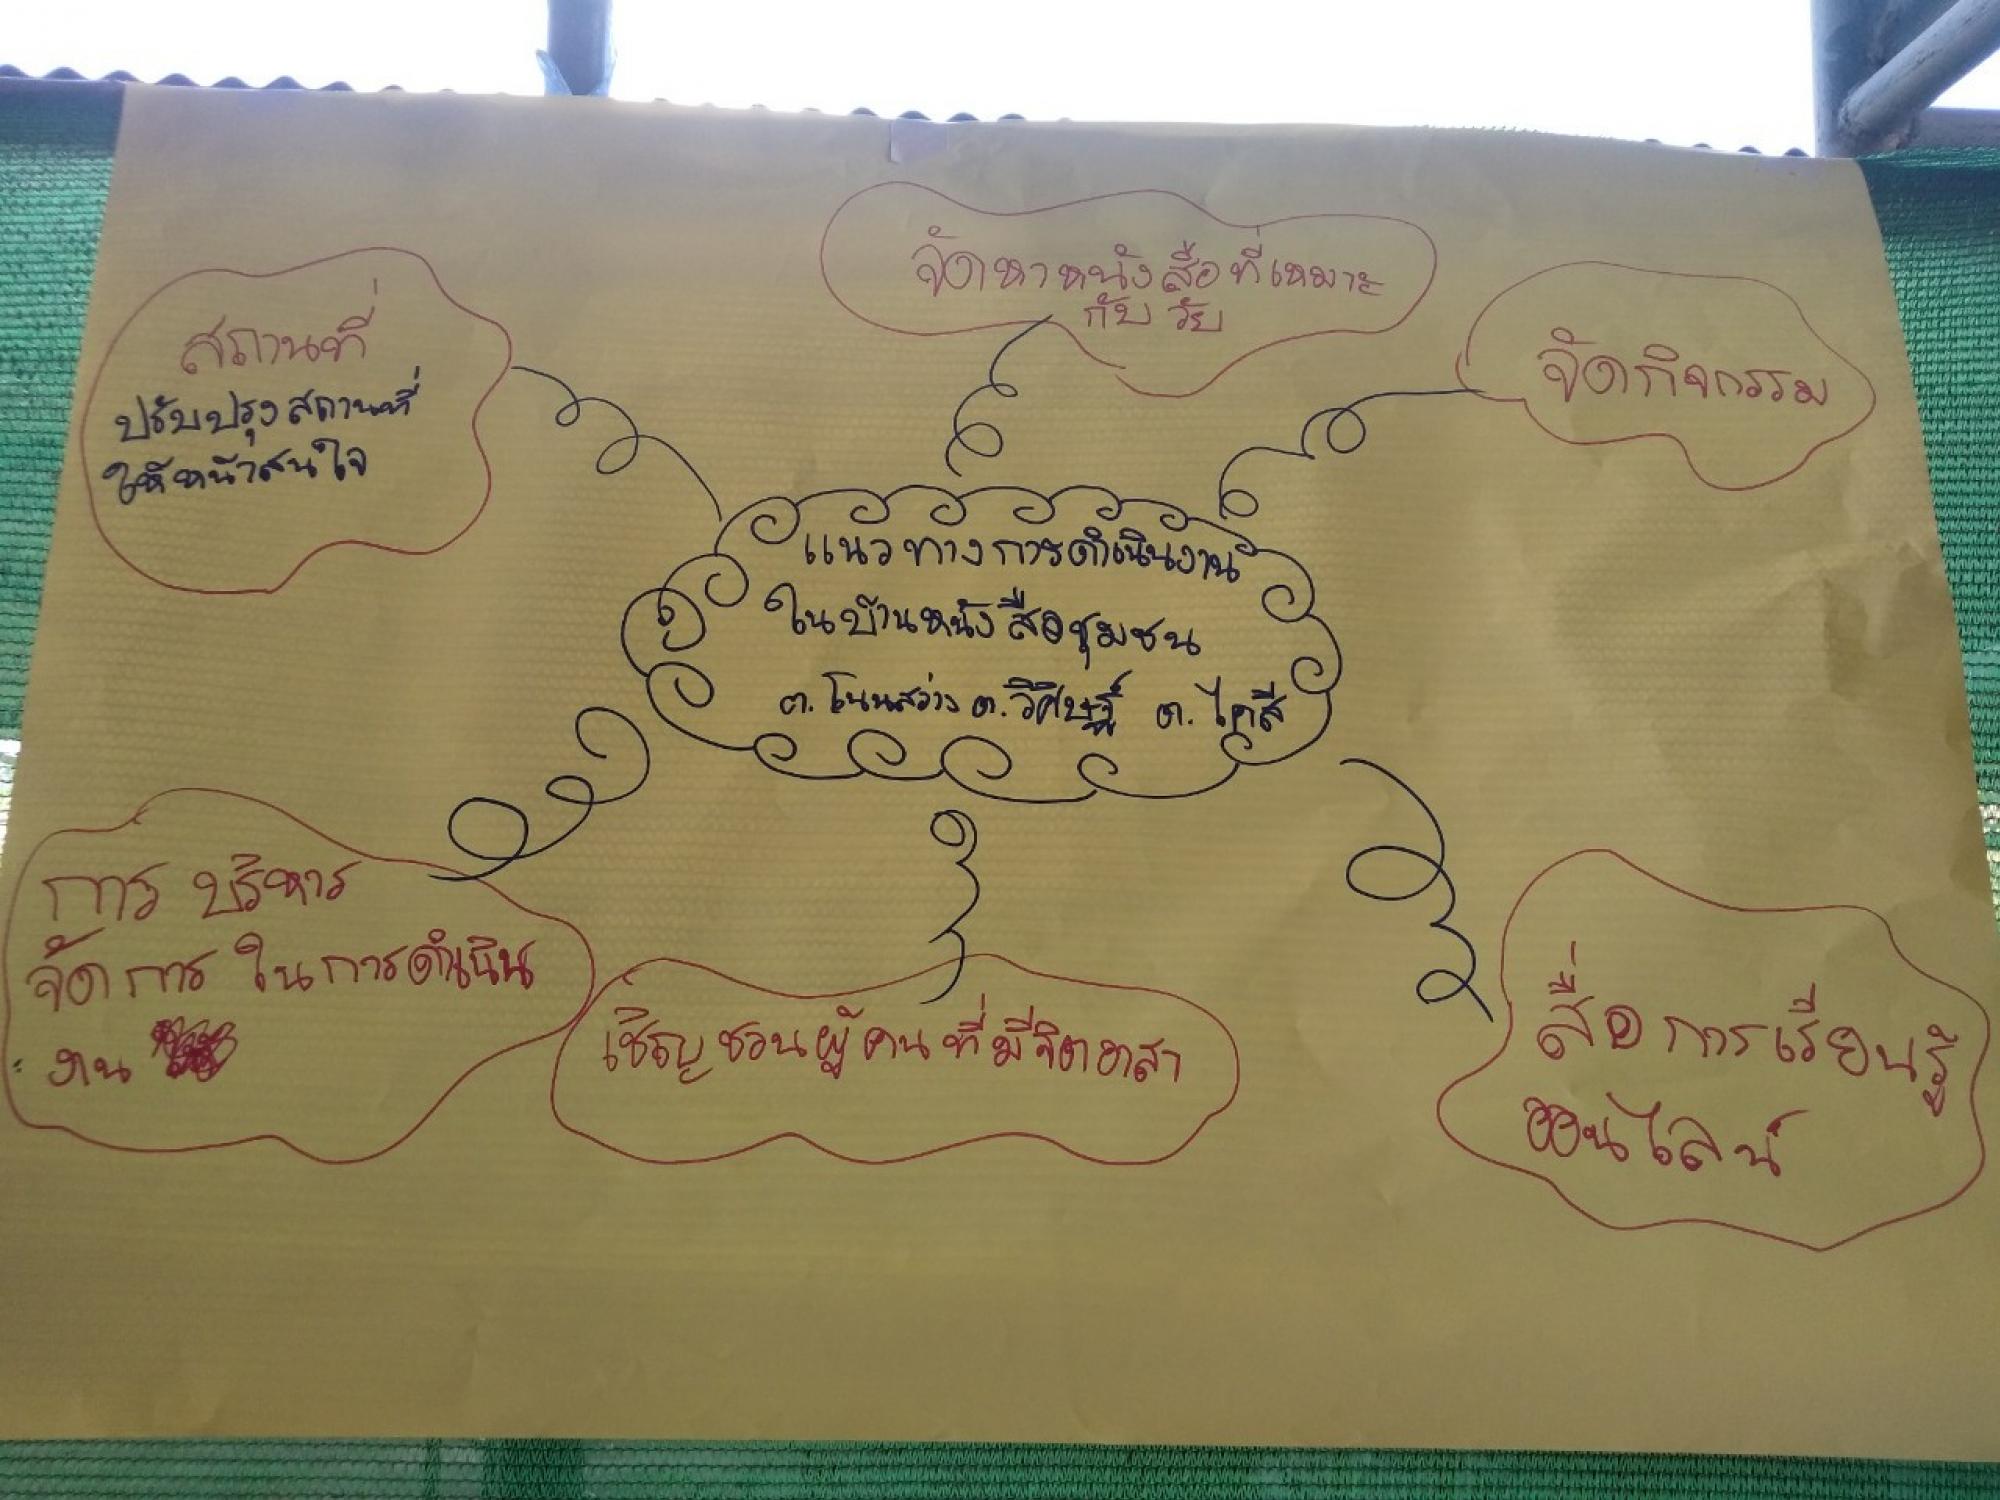 จัดหาหนังสือที่เหมาะ
กับวัย
สถานที่
ปรับปรุงสถานที่
ให้หน้าสนใจ
จัดกิจกรรม
แนวทางการดำเนินงาน
ในบ้านหนังสือชุมชน
ต.โนนสว่าง ต.วิศิษฐ์ ต.ไคสี
การ บริหาร
จัดการ ในการดำเนิน
งาน
เชิญชวนผู้คนที่มีจิตอาสา
สื่อการเรียนรู้
ออนไลน์